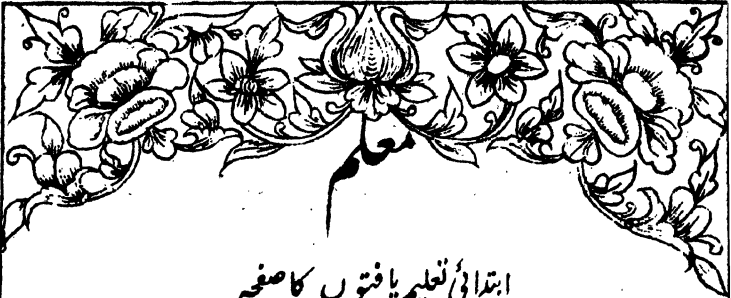 معلم
ابتدائی تعلیم یافتوں کا صفحہ